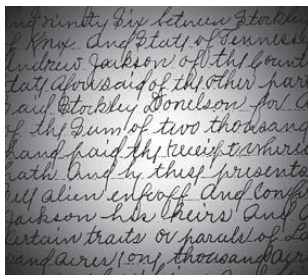 and ninety six between Stockley
of Knox and State of Tennessee
Andrew Jackson of the Count
tate aforesaid of the other par
said Stockley Donelson for
of the Sum of two thousand
hand paid the receipt where
hath and by these presents
sell alien enfeoff and Conf
Jackson his heirs and
certain traits or parcels of L
sand acres (one thousand ac